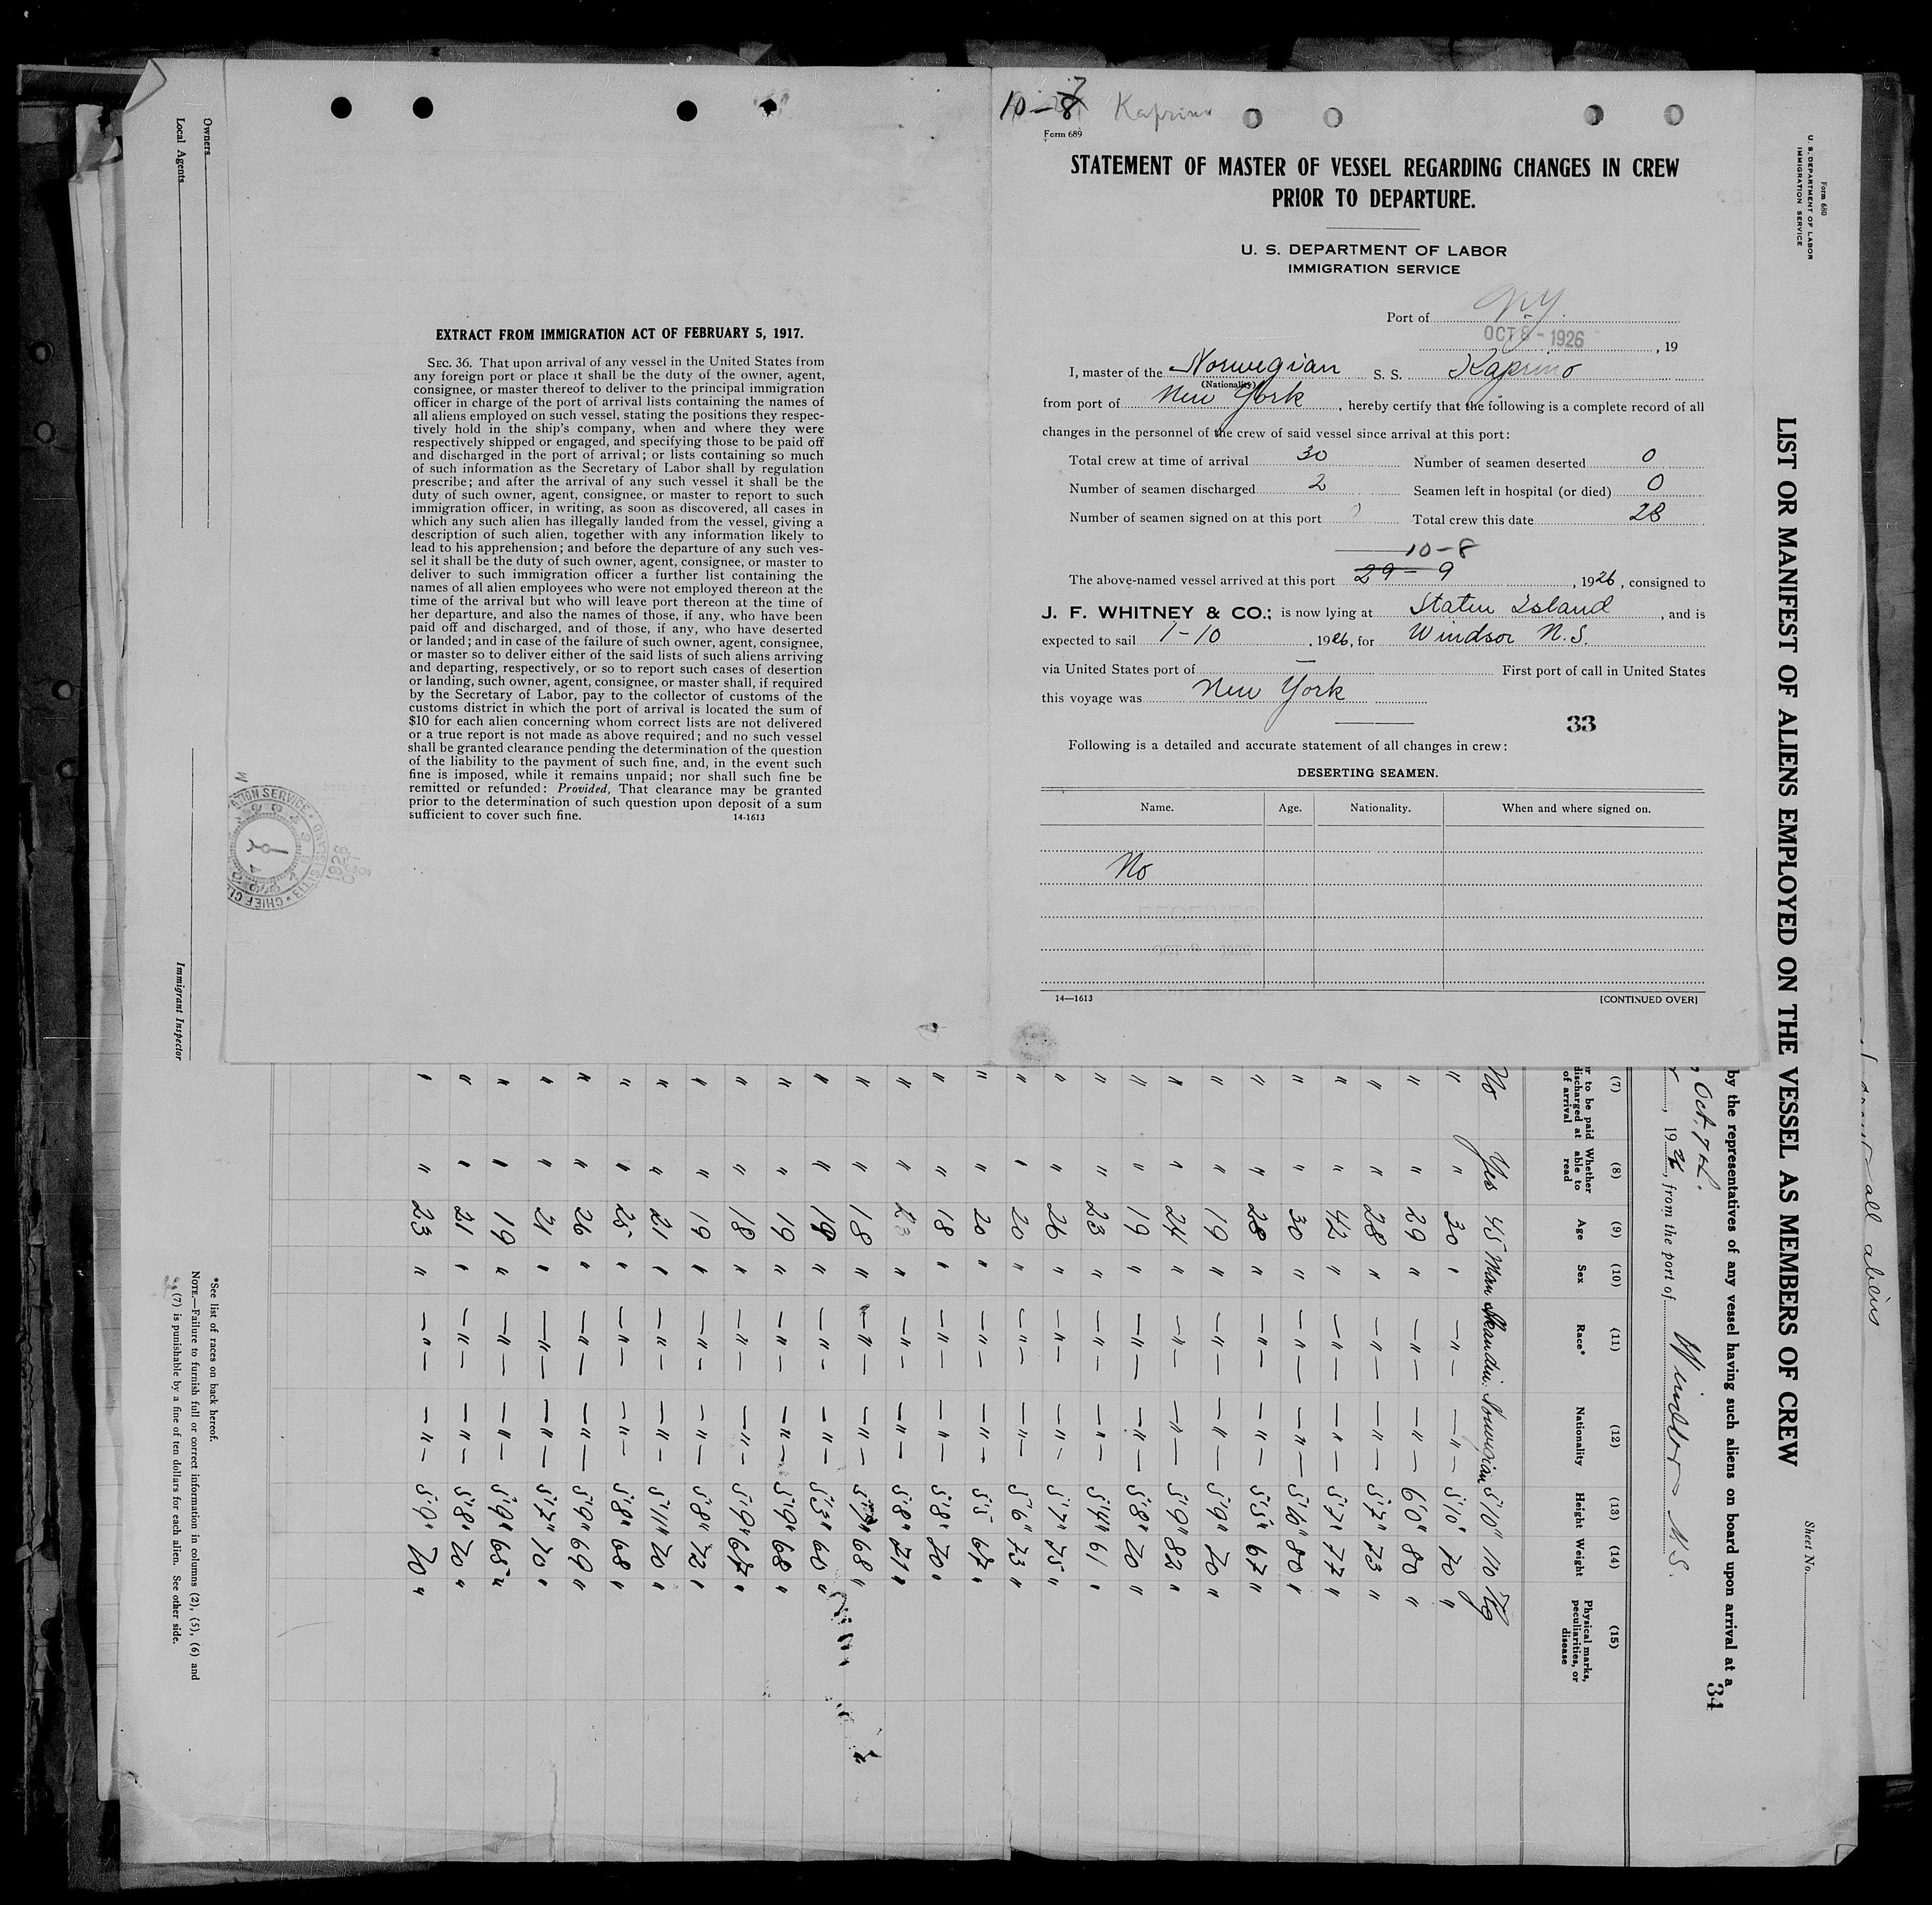 10-7
Kaprino
Form 689
STATEMENT OF MASTER OF VESSEL REGARDING CHANGES IN CREW
PRIOR TO DEPARTURE.
U. S. DEPARTMENT OF LABOR
IMMIGRATION SERVICE
Port of N.Y.
OCT 8 - 1926, 19
I, master of the Norwegian S. S. Kaprino
(Nationality)
from port of New York, hereby certify that the following is a complete record of all
changes in the personnel of the crew of said vessel since arrival at this port:
Total crew at time of arrival 30 Number of seamen deserted 0
Number of seamen discharged 2 Seamen left in hospital (or died) 0
Number of seamen signed on at this port Total crew this date 28
10-8
The above-named vessel arrived at this port 29-9, 1926, consigned to
J. F. WHITNEY & CO.; is now lying at Staten Island, and is
expected to sail 1-10, 1926, for Windsor N.S.
via United States port of — First port of call in United States
this voyage was New York
33
Following is a detailed and accurate statement of all changes in crew:
DESERTING SEAMEN.
Name. Age. Nationality. When and where signed on.
No
14—1613 [CONTINUED OVER]
EXTRACT FROM IMMIGRATION ACT OF FEBRUARY 5, 1917.
SEC. 36. That upon arrival of any vessel in the United States from
any foreign port or place it shall be the duty of the owner, agent,
consignee, or master thereof to deliver to the principal immigration
officer in charge of the port of arrival lists containing the names of
all aliens employed on such vessel, stating the positions they respec-
tively hold in the ship's company, when and where they were
respectively shipped or engaged, and specifying those to be paid off
and discharged in the port of arrival; or lists containing so much
of such information as the Secretary of Labor shall by regulation
prescribe; and after the arrival of any such vessel it shall be the
duty of such owner, agent, consignee, or master to report to such
immigration officer, in writing, as soon as discovered, all cases in
which any such alien has illegally landed from the vessel, giving a
description of such alien, together with any information likely to
lead to his apprehension; and before the departure of any such ves-
sel it shall be the duty of such owner, agent, consignee, or master to
deliver to such immigration officer a further list containing the
names of all alien employees who were not employed thereon at the
time of the arrival but who will leave port thereon at the time of
her departure, and also the names of those, if any, who have been
paid off and discharged, and of those, if any, who have deserted
or landed; and in case of the failure of such owner, agent, consignee,
or master so to deliver either of the said lists of such aliens arriving
and departing, respectively, or so to report such cases of desertion
or landing, such owner, agent, consignee, or master shall, if required
by the Secretary of Labor, pay to the collector of customs of the
customs district in which the port of arrival is located the sum of
$10 for each alien concerning whom correct lists are not delivered
or a true report is not made as above required; and no such vessel
shall be granted clearance pending the determination of the question
of the liability to the payment of such fine, and, in the event such
fine is imposed, while it remains unpaid; nor shall such fine be
remitted or refunded: Provided, That clearance may be granted
prior to the determination of such question upon deposit of a sum
sufficient to cover such fine. 14-1613
Form 680
U. S. DEPARTMENT OF LABOR
IMMIGRATION SERVICE
LIST OR MANIFEST OF ALIENS EMPLOYED ON THE VESSEL AS MEMBERS OF CREW
Sheet No.
by the representatives of any vessel having such aliens on board upon arrival at a
34
Oct. 7th.
, 1926, from the port of Windsor N.S.
(7) (8) (9) (10) (11) (12) (13) (14) (15)
to be paid discharged at of arrival
Whether able to read
Age
Sex
Race*
Nationality
Height
Weight
Physical marks, peculiarities, or disease
No Yes 45 Man Skandin. Norwegian 5'10" 110 Kg
" " 30 " —"— —"— 5'10" 70 "
" " 29 " —"— —"— 6'0" 80 "
" " 28 " —"— —"— 5'7" 73 "
" " 42 " —"— —"— 5'7" 77 "
" " 30 " —"— —"— 5'6" 80 "
" " 28 " —"— —"— 5'5" 67 "
" " 19 " —"— —"— 5'9" 70 "
" " 24 " —"— —"— 5'9" 82 "
" " 19 " —"— —"— 5'8" 70 "
" " 23 " —"— —"— 5'4" 61 "
" " 26 " —"— —"— 5'7" 75 "
" " 20 " —"— —"— 5'6" 73 "
" " 20 " —"— —"— 5'5" 67 "
" " 18 " —"— —"— 5'8" 70 "
" " 23 " —"— —"— 5'8" 71 "
" " 18 " —"— —"— 68 "
" " 19 " —"— —"— 5'3" 60 "
" " 19 " —"— —"— 5'9" 68 "
" " 18 " —"— —"— 5'9" 67 "
" " 19 " —"— —"— 5'8" 72 "
" " 21 " —"— —"— 5'11" 70 "
" " 25 " —"— —"— 5'8" 68 "
" " 26 " —"— —"— 5'9" 69 "
" " 21 " —"— —"— 5'7" 70 "
" " 19 " —"— —"— 5'9" 65 "
" " 21 " —"— —"— 5'8" 70 "
" " 23 " —"— —"— 5'9" 70 "
*See list of races on back hereof.
NOTE.—Failure to furnish full or correct information in columns (2), (5), (6) and
(7) is punishable by a fine of ten dollars for each alien. See other side.
Owners
Local Agents
Immigrant Inspector
all aliens